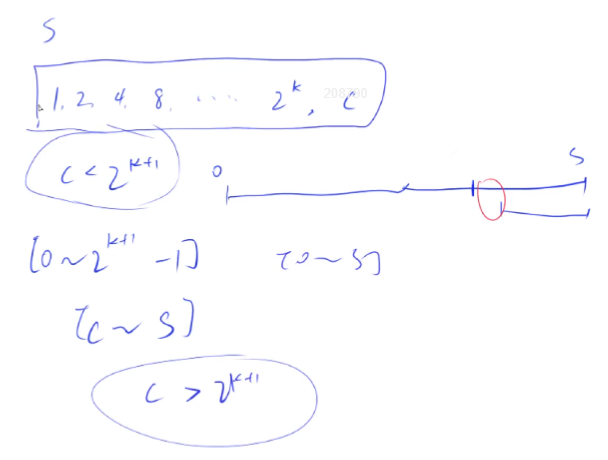 S
1, 2, 4, 8, ..... 2^k, C
208700
C < 2^{k+1}
0 S
[0 ~ 2^{k+1} - 1] [0 ~ S]
[C ~ S]
C > 2^{k+1}